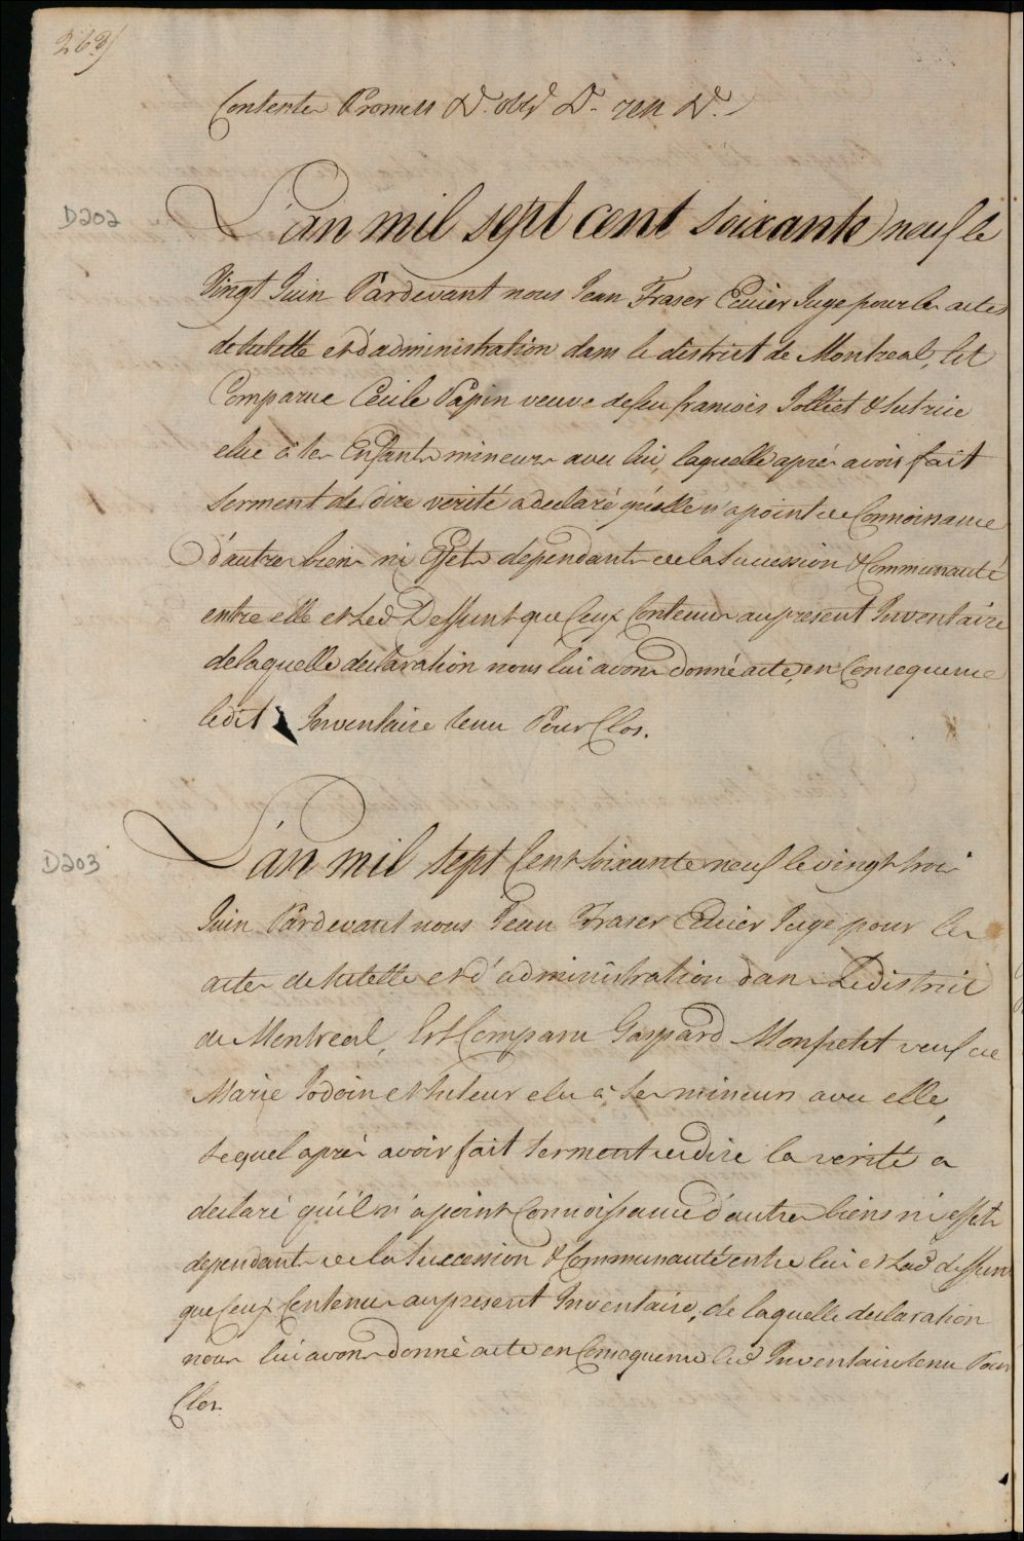 268
Contenter Promett &c. oblig &c. ren &c.
D202
L'an mil sept cent soixante neuf le
Vingt Juin Pardevant nous Jean Fraser Ecuier Juge pour les actes
de tutelle et d'administration dans le district de Montreal, est
Comparue Cecile Papin veuve defeu francois Jolliet & tutrice
elue à ses Enfants mineurs avec lui, laquelle aprés avoir fait
serment de dire verité a declaré qu'elle n'a point de Connoissance
d'autres biens ni Effets dependants de la Succession & Communauté
entre elle et Led Deffunt que Ceux Contenus au present Inventaire
de laquelle declaration nous lui avons donné acte, en Consequence
ledit Inventaire tenu Pour Clos.
D203
L'an mil sept Cent soixante neuf le vingt trois
Juin Pardevant nous Jean Fraser Ecuier Juge pour les
actes de tutelle et d'administration dans Le district
de Montreal, Est Comparu Gaspard Monpetit veuf de
Marie Jodoin et tuteur elu à ses mineurs avec elle,
Lequel aprés avoir fait serment de dire la verité a
declaré qu'il n'a point Connoissance d'autres biens ni effets
dependants de la Succession & Communauté entre lui et Lad deffun
que Ceux Contenus au present Inventaire, de laquelle declaration
nous lui avons donné acte en Consequence led Inventaire tenu Pour
Clos.